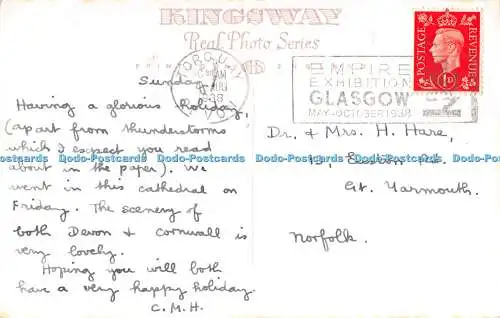 KINGSWAY
Real Photo Series
TORQUAY
38
EMPIRE
EXHIBITION
GLASGOW
MAY-OCTOBER 1938
POSTAGE
REVENUE
1D
Sunday.
Having a glorious holiday,
(apart from thunderstorms
which I expect you read
about in the paper). We
went in this cathedral on
Friday. The scenery of
both Devon & Cornwall is
very lovely.
Hoping you will both
have a very happy holiday.
C.M.H.
Dr. & Mrs. H. Hare,
15, Rd.
Gt. Yarmouth.
Norfolk.
Dodo-Postcards Dodo-Postcards Dodo-Postcards Dodo-Postcards Dodo-Postcards Dodo-Postcards